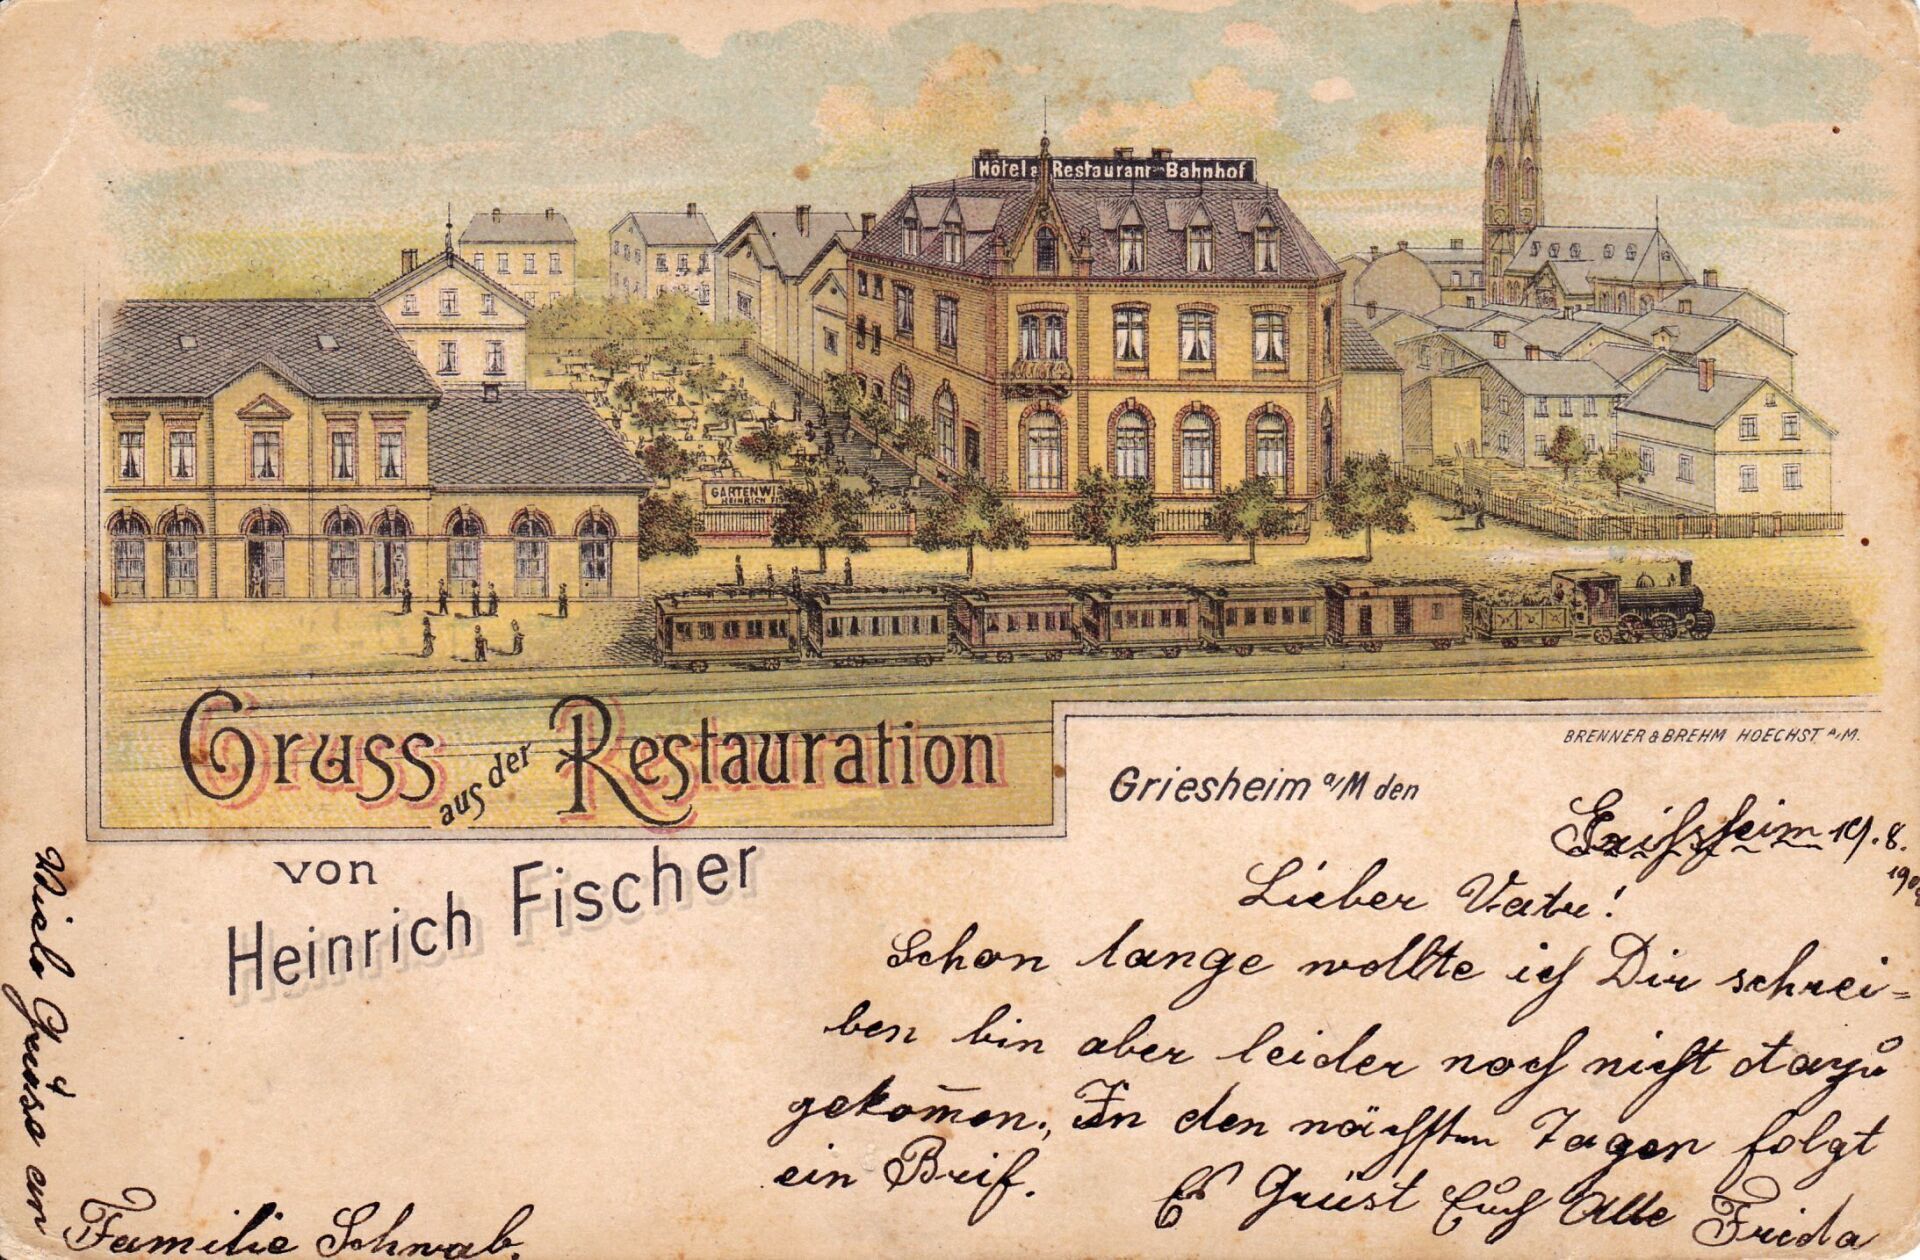 Hôtel & Restaurant Bahnhof
GARTENWI
HEINRICH
Gruss aus der Restauration
von
Heinrich Fischer
BRENNER & BREHM HOECHST A/M.
Griesheim a/M den
19. 8.
Lieber Vater!
Schon lange wollte ich Dir schrei=
ben bin aber leider noch nicht dazu
gekom̅en. In den nächsten Tagen folgt
ein Brief.
Es Grüsst Euch Alle Frida
Viele Grüsse an
Familie Schwab.